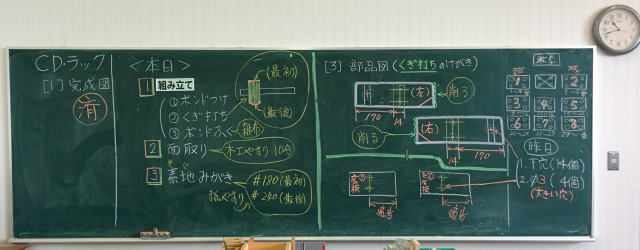 CD・ラック
[1] 完成図
済
<本日>
1 組み立て
① ボンドつけ
② くぎ打ち
③ ボンドふく
(最初)
(最後)
2 面取り
木工やすり 10分
3 素地みがき
そじ
紙やすり
#180(最初)
#240(最後)
[3] 部品図(くぎ打ちのけがき)
(左)
削る
170
14
削る
(右)
14
170
底板
適当
適当
教卓
<昨日>
1. 下穴(14個)
2. φ3(4個)
(大きい穴)